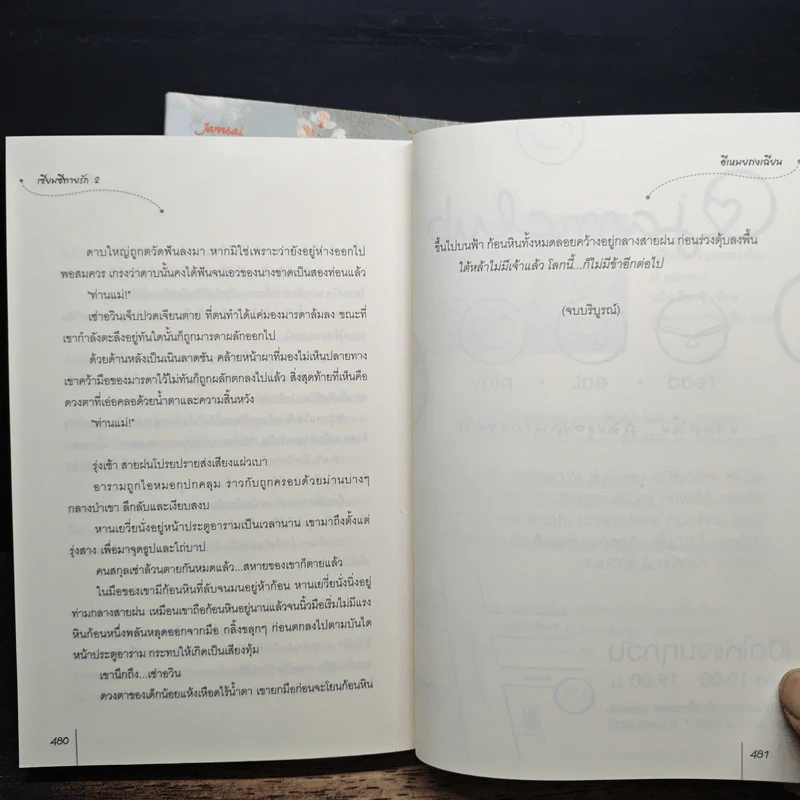 Jamsai
เซียมซีทายรัก 2
ดาบใหญ่ถูกตวัดฟันลงมา หากมิใช่เพราะว่ายังอยู่ห่างออกไป
พอสมควร เกรงว่าดาบนั้นคงได้ฟันจนเอวของนางขาดเป็นสองท่อนแล้ว
"ท่านแม่!"
เซ่าอวินเจ็บปวดเจียนตาย ที่ตนทำได้แค่มองมารดาล้มลง ขณะที่
เขากำลังตะลึงอยู่ทันใดนั้นก็ถูกมารดาผลักออกไป
ด้วยด้านหลังเป็นเนินลาดชัน คล้ายหน้าผาที่มองไม่เห็นปลายทาง
เขาคว้ามือของมารดาไว้ไม่ทันก็ถูกผลักตกลงไปแล้ว สิ่งสุดท้ายที่เห็นคือ
ดวงตาที่เอ่อคลอด้วยน้ำตาและความสิ้นหวัง
"ท่านแม่!"
รุ่งเช้า สายฝนโปรยปรายส่งเสียงแผ่วเบา
อารามถูกไอหมอกปกคลุม ราวกับถูกครอบด้วยม่านบางๆ
กลางป่าเขา ลึกลับและเงียบสงบ
หานเยวี่ยนั่งอยู่หน้าประตูอารามเป็นเวลานาน เขามาถึงตั้งแต่
รุ่งสาง เพื่อมาจุดธูปและไถ่บาป
คนสกุลเซ่าล้วนตายกันหมดแล้ว...สหายของเขาก็ตายแล้ว
ในมือของเขามีก้อนหินที่ลับจนมนอยู่ห้าก้อน หานเยวี่ยนั่งนิ่งอยู่
ท่ามกลางสายฝน เหมือนเขาถือก้อนหินอยู่นานแล้วจนนิ้วมือเริ่มไม่มีแรง
หินก้อนหนึ่งพลันหลุดออกจากมือ กลิ้งขลุกๆ ก่อนตกลงไปตามบันได
หน้าประตูอาราม กระทบให้เกิดเป็นเสียงทุ้ม
เขานึกถึง...เซ่าอวิน
ดวงตาของเด็กน้อยแห้งเหือดไร้น้ำตา เขายกมือก่อนจะโยนก้อนหิน
480
อีเหมยถงเฉียน
ขึ้นไปบนฟ้า ก้อนหินทั้งหมดลอยคว้างอยู่กลางสายฝน ก่อนร่วงตุ้บลงพื้น
ใต้หล้าไม่มีเจ้าแล้ว โลกนี้...ก็ไม่มีข้าอีกต่อไป
(จบบริบูรณ์)
481